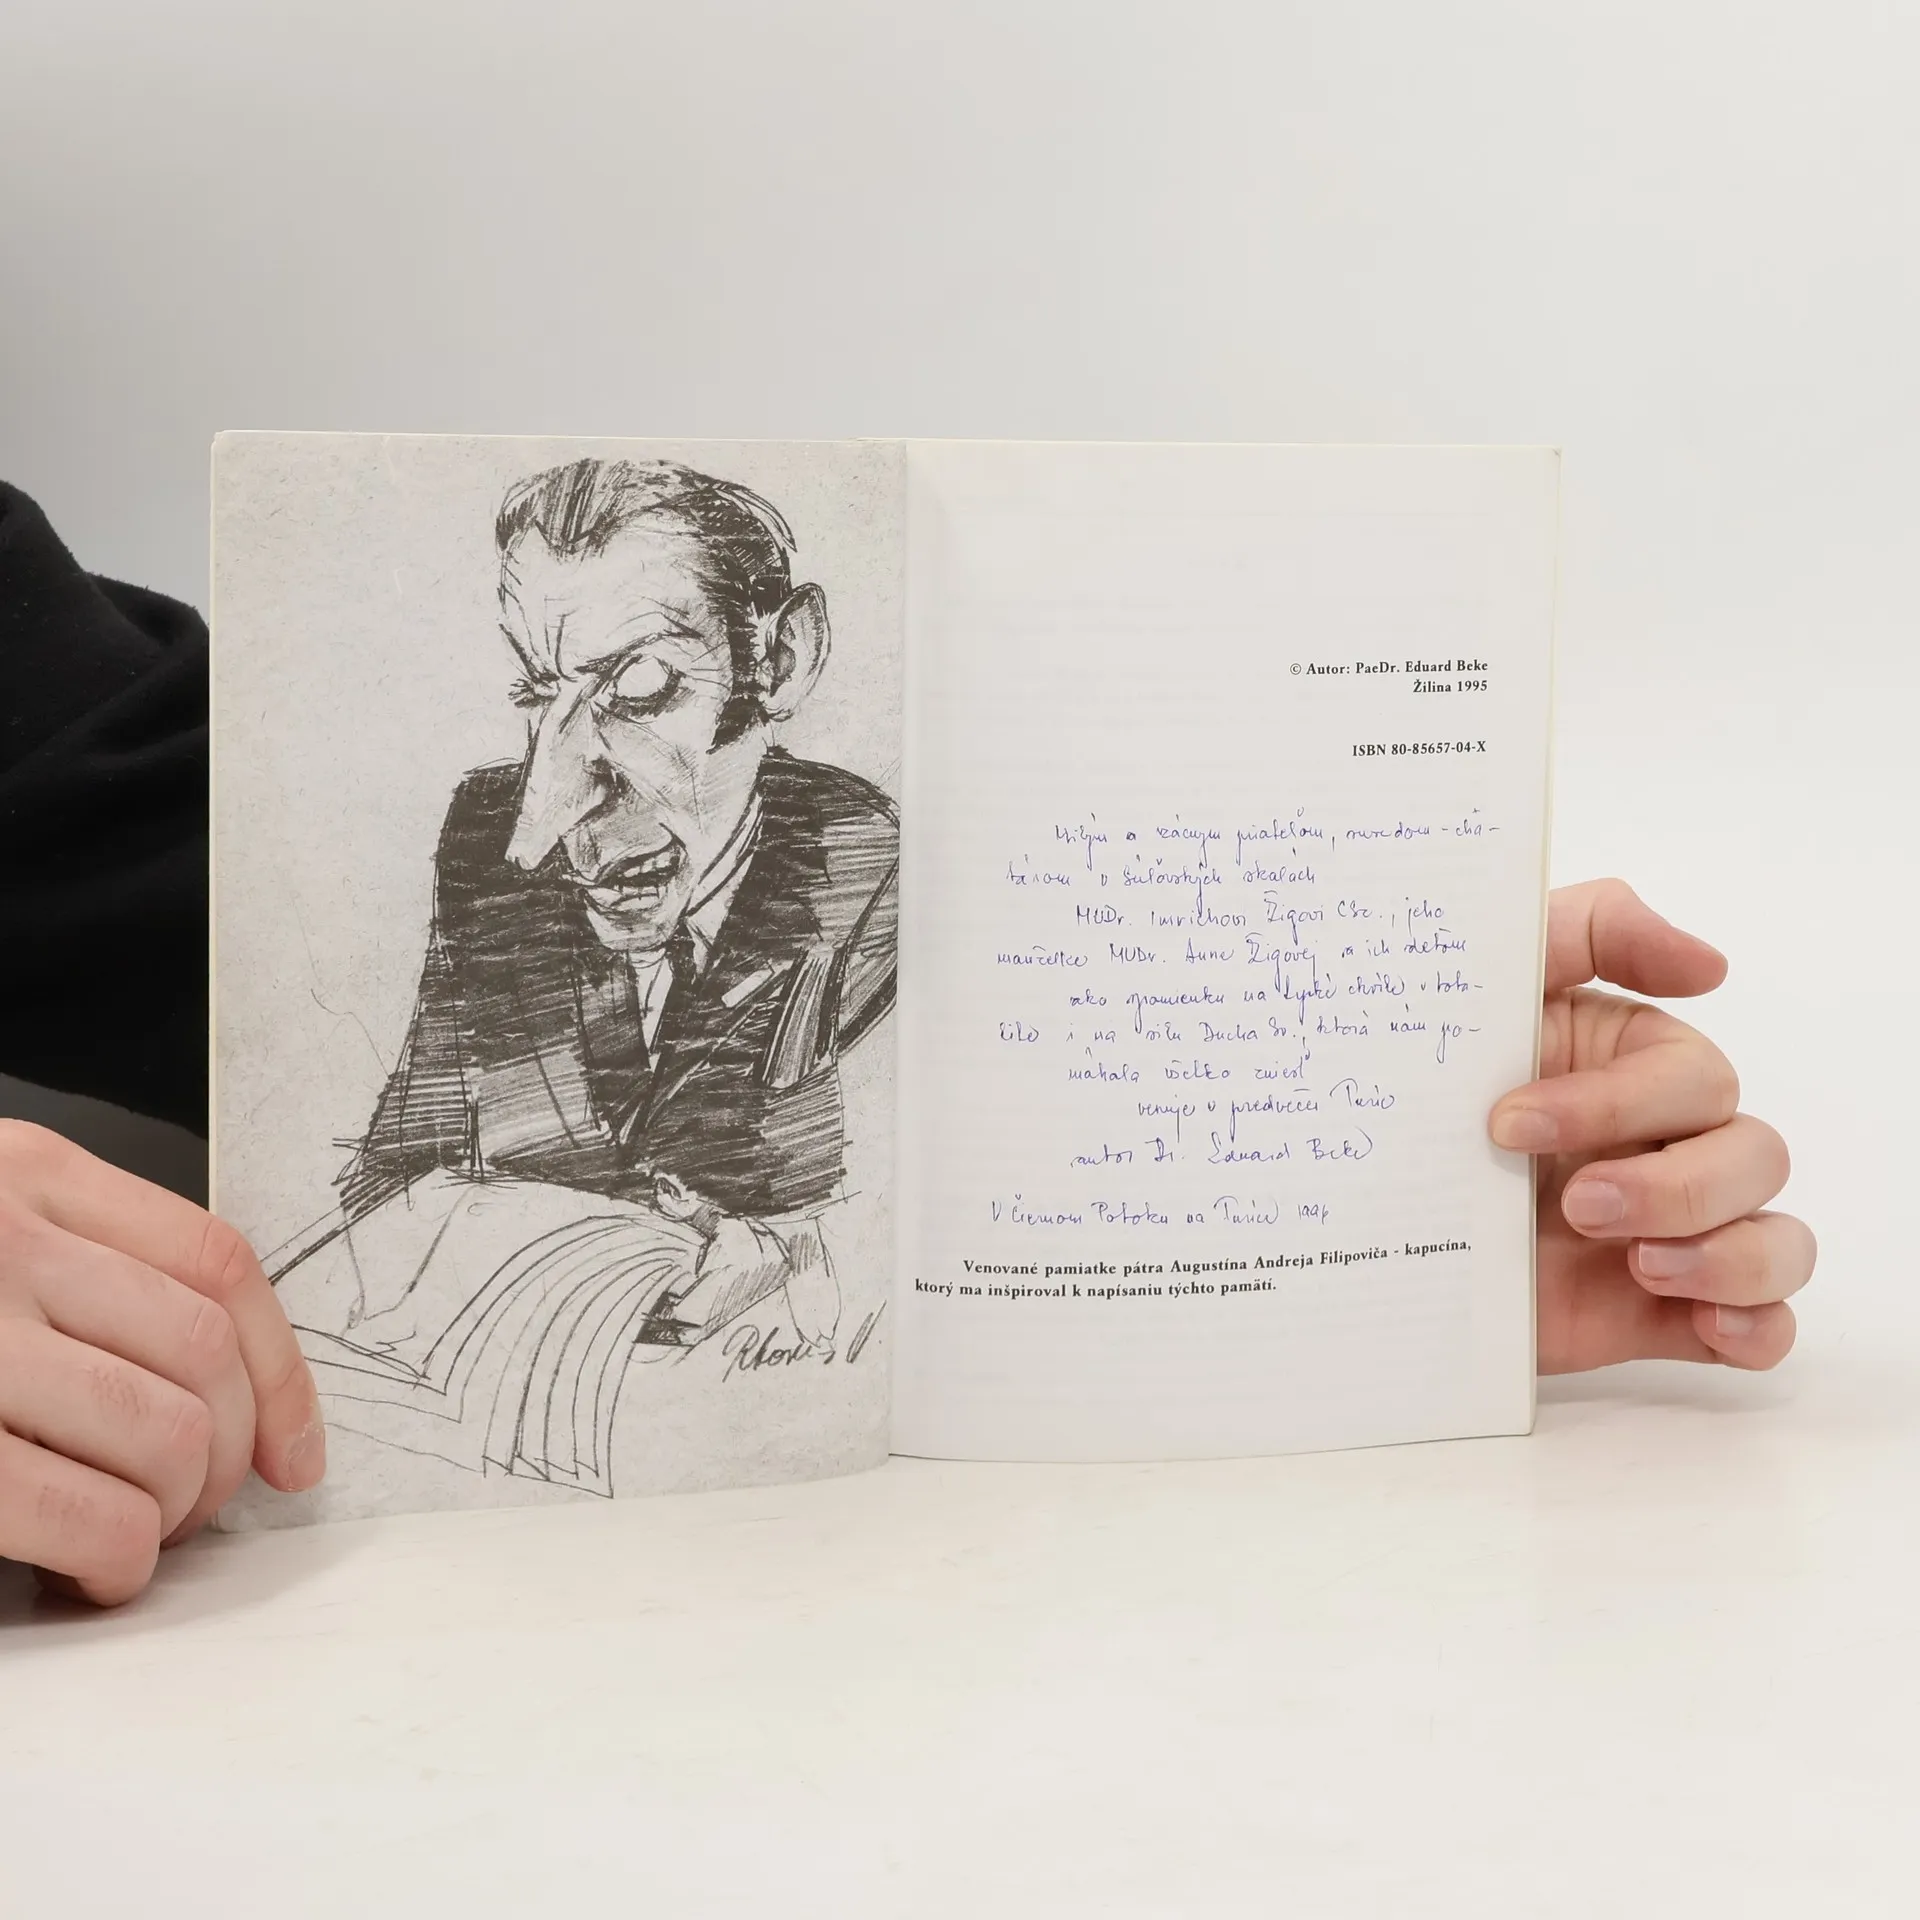 © Autor: PaeDr. Eduard Beke
Žilina 1995
ISBN 80-85657-04-X
Milým a vzácnym priateľom, susedom - cha-
tárom v Súľovských skalách
MUDr. Imrichovi Žigovi CSc., jeho
manželke MUDr. Anne Žigovej a ich deťom
ako spomienku na ťapké chvíle v tota-
lite i na silu Ducha Sv., ktorá nám po-
máhala všetko zniesť
venuje v predvečer Turíc
autor Dr. Eduard Beke
V Čiernom Potoku na Turíce 1996
Venované pamiatke pátra Augustína Andreja Filipoviča - kapucína,
ktorý ma inšpiroval k napísaniu týchto pamätí.